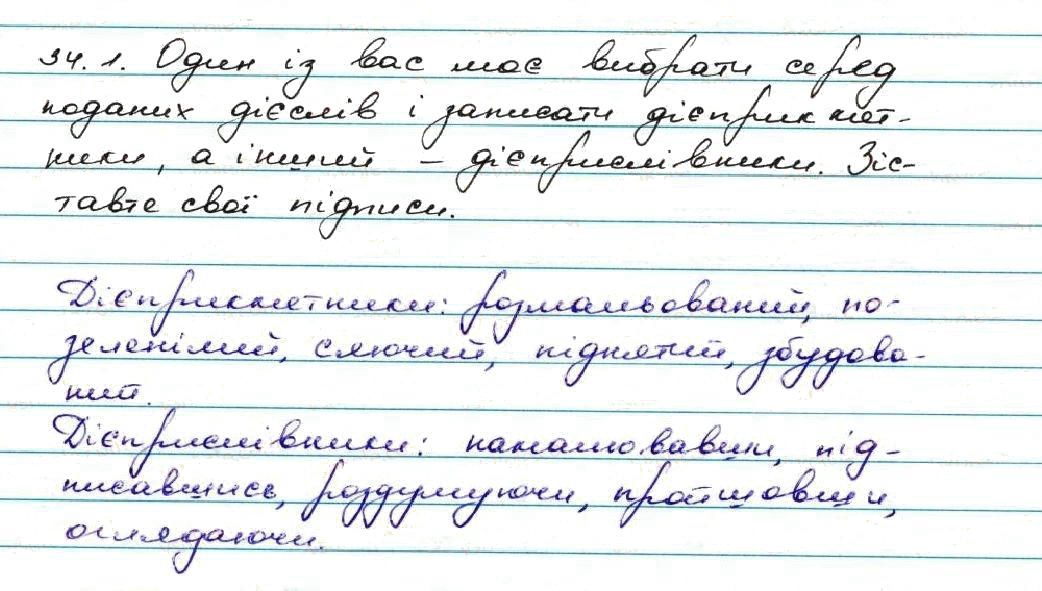 34.1. Один із вас має вибрати серед
поданих дієслів і записати дієприкмет-
ники, а інший – дієприслівники. Зіс-
тавте свої підписи.
Дієприкметники: розмальований, по-
зеленілий, сяючий, піднятий, збудова-
ний.
Дієприслівники: намалювавши, під-
писавшись, роздумуючи, пройшовши,
оглядаючи.